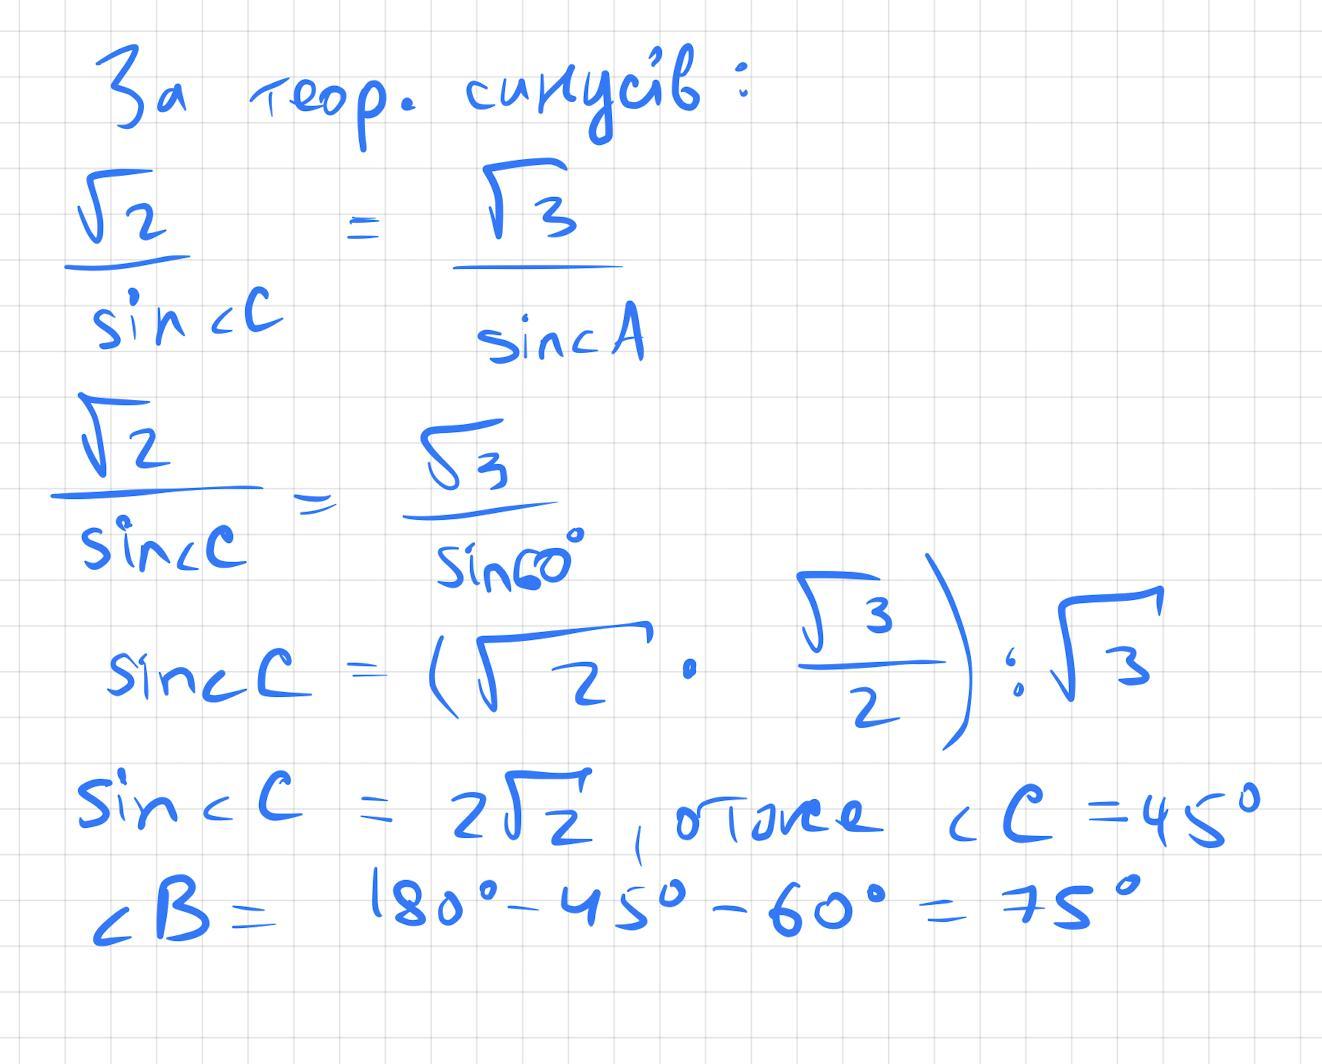 За теор. синусів:
√2 / sin∠C = √3 / sin∠A
√2 / sin∠C = √3 / sin60°
sin∠C = (√2 · √3/2) : √3
sin∠C = 2√2, отже ∠C = 45°
∠B = 180° - 45° - 60° = 75°